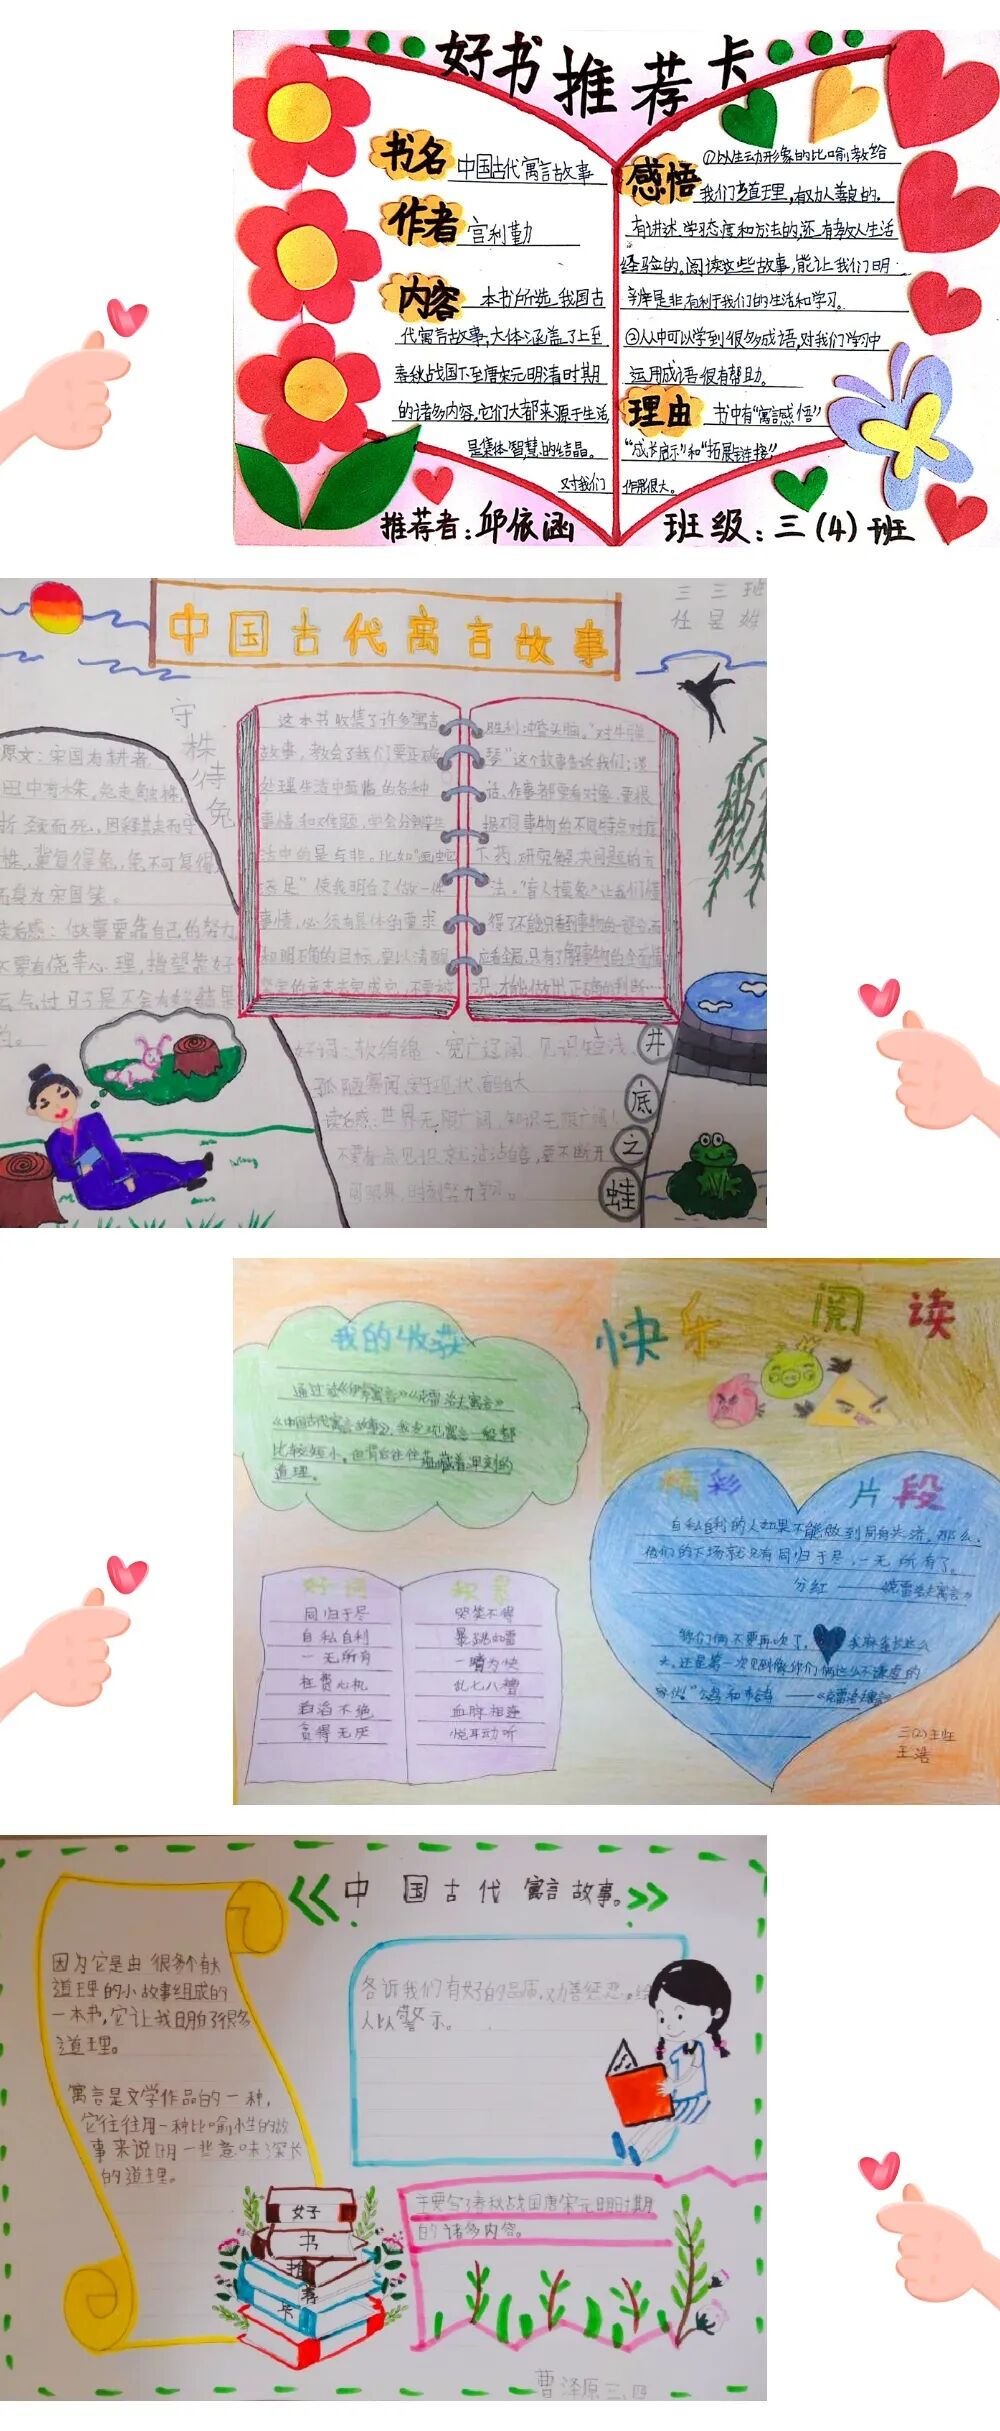 好书推荐卡
书名 中国古代寓言故事
作者 宫利勤
内容 本书所选我国古
代寓言故事,大体涵盖了上至
春秋战国下至唐宋元明清时期
的诸多内容,它们大都来源于生活
是集体智慧的结晶。
感悟 ①以生动形象的比喻教给
我们道理,有劝人善良的,
有讲述学习态度和方法的,还有教人生活
经验的。阅读这些故事,能让我们明
辛库是非,有利于我们的生活和学习。
②从中可以学到很多成语,对我们学习中
运用成语很有帮助。
理由 书中有“寓言感悟”
“成长启示”和“拓展链接”
对我们 作用很大。
推荐者:邱依涵
班级:三(4)班
中国古代寓言故事
三三班
任呈姓
守株待兔
原文:宋国有耕者,
田中有株。兔走触株,
折颈而死。因释其耒而守
株,冀复得兔,兔不可复得,
而身为宋国笑。
读后感:做事要靠自己的努力,
不要有侥幸心理,指望靠好
运气过日子是不会有好结果
的。
这本书收集了许多寓言
故事,教会了我们要正确
处理生活中面临的各种
事情和难题,学会分辨生
活中的是与非。比如“画蛇
添足”使我明白了做一件
事情,必须有具体的要求
和明确的目标,要以清醒
坚定的意志去完成它,不要被
胜利冲昏头脑。“对牛弹
琴”这个故事告诉我们:说
话、作事都要看对象,要根
据不同事物的不同特点对症
下药,研究解决问题的方
法。“盲人摸象”让我们懂
得了不能只看到事物的一部分,而
应看全局,只有了解事物的全面情
况,才能做出正确的判断……
好词:软绵绵、宽广辽阔、见识短浅、
孤陋寡闻、安于现状、自大
读后感:世界无限广阔,知识无限广博!
不要有点见识就沾沾自喜,要不断开
阔眼界,时刻努力学习。
井底之蛙
快乐阅读
我的收获
通过读《伊索寓言》《克雷洛夫寓言》
《中国古代寓言故事》,我发现寓言一般都
比较短小,但背后往往蕴藏着深刻的
道理。
好词 积累
同归于尽 哭笑不得
自私自利 暴跳如雷
一无所有 一睹为快
枉费心机 乱七八糟
滔滔不绝 血脉相连
贪得无厌 悦耳动听
精彩片段
自私自利的人如果不能做到同舟共济,那么,
他们的下场就只有同归于尽,一无所有了。
分红——《克雷洛夫寓言》
你们俩不要再吹了,我麻雀长这么
大,还是第一次见到像你们俩这么不谦虚的
三(2)王班
王浩
中国古代寓言故事。
因为它是由很多个有大
道理的小故事组成的
一本书,它让我明白了很多
道理。
寓言是文学作品的一种,
它往往用一种比喻性的故
事来说明一些意味深长
的道理。
告诉我们有好的品质,劝善惩恶。给
人以警示。
主要含了春秋战国唐宋元明时期
的诸多内容。
好
书
推
荐
卡
曹泽原三.四